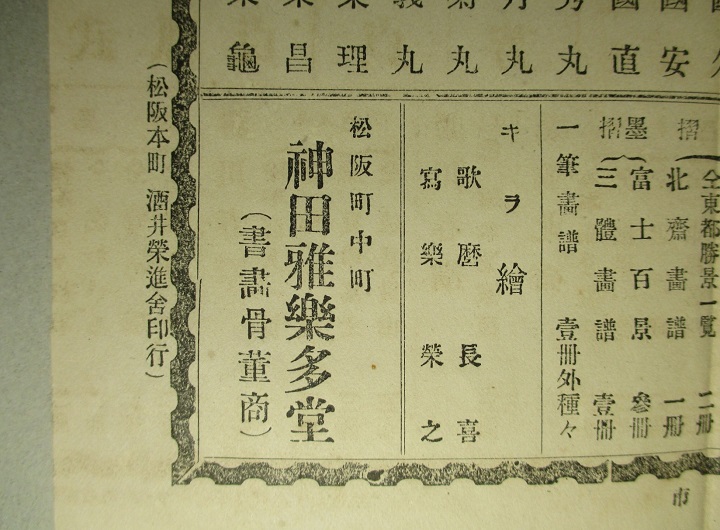 國安
國直
秀丸
丸
丸
義丸
榮理
榮昌
龜
摺
全東都勝景一覧 二冊
北齋畵譜 一冊
墨摺
富士百景 參冊
三體畵譜 壹冊
一筆畵譜 壹冊外種々
キヲ繪
歌麿 長喜
寫樂 榮之
松阪町中町
神田雅樂多堂
(書畵骨董商)
(松阪本町 酒井榮進舍印行)
市